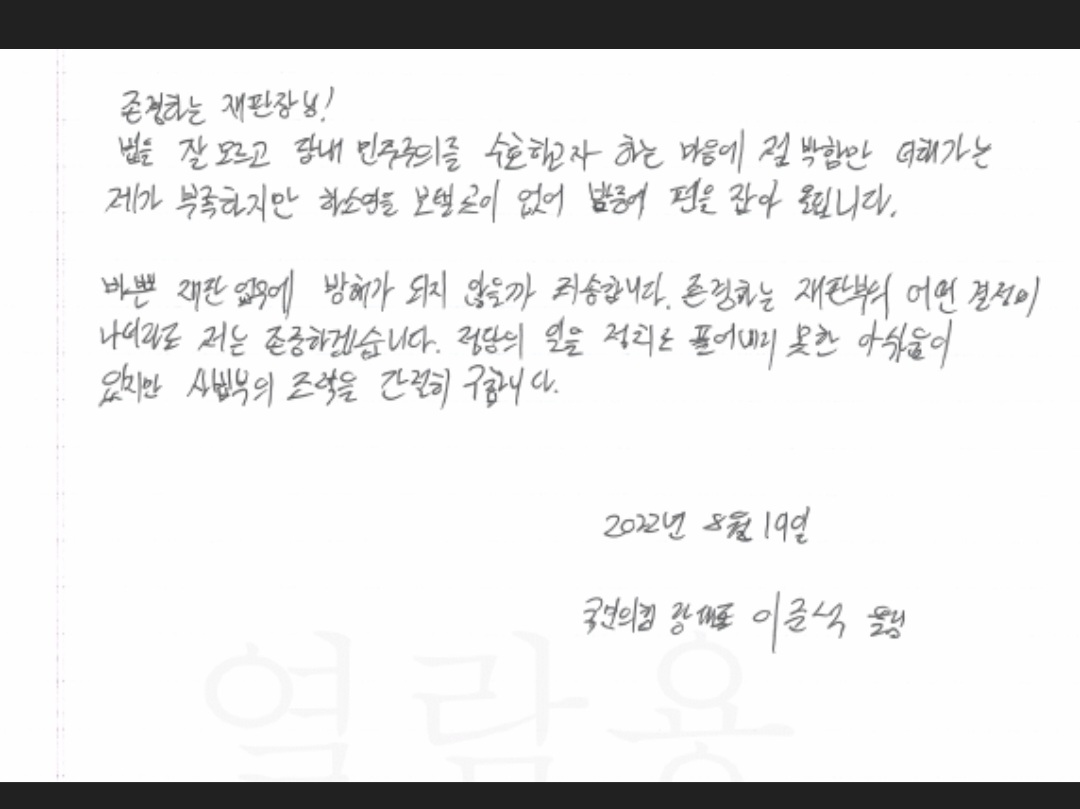 존경하는 재판장님!
법을 잘 모르고 당내 민주주의를 수호하고자 하는 마음에 절박함만 더해가는
제가 부족하지만 하소연을 보낼 곳이 없어 밤중에 펜을 잡아 올립니다.
바쁜 재판 업무에 방해가 되지 않을까 죄송합니다. 존경하는 재판부의 어떤 결정이
나더라도 저는 존중하겠습니다. 정당의 일을 정치로 풀어내지 못한 아쉬움이
있지만 사법부의 조력을 간절히 구합니다.
2022년 8월 19일
국민의힘 당대표 이준석 올림
열람용